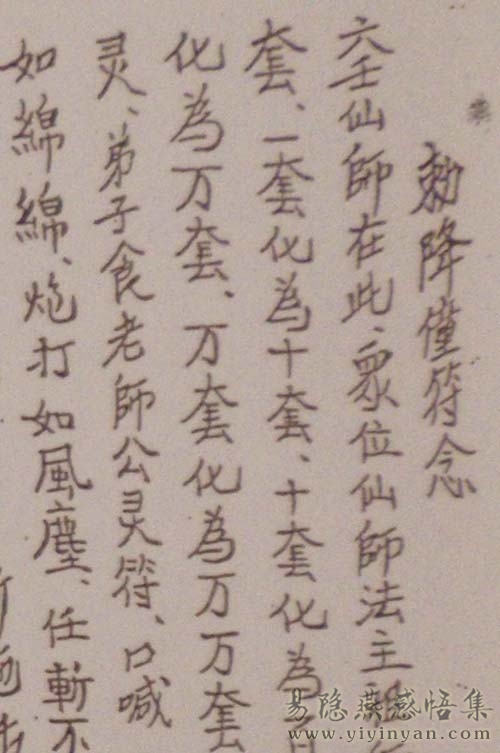 勅降僮符念
六壬仙師在此、眾位仙師法主
套、一套化為十套、十套化為
化為万套、万套化為万万套
灵、弟子食老師公灵符、口喊
如綿綿、炮打如風塵、任斬不
易隐燕感悟集
www.yiyinyan.com